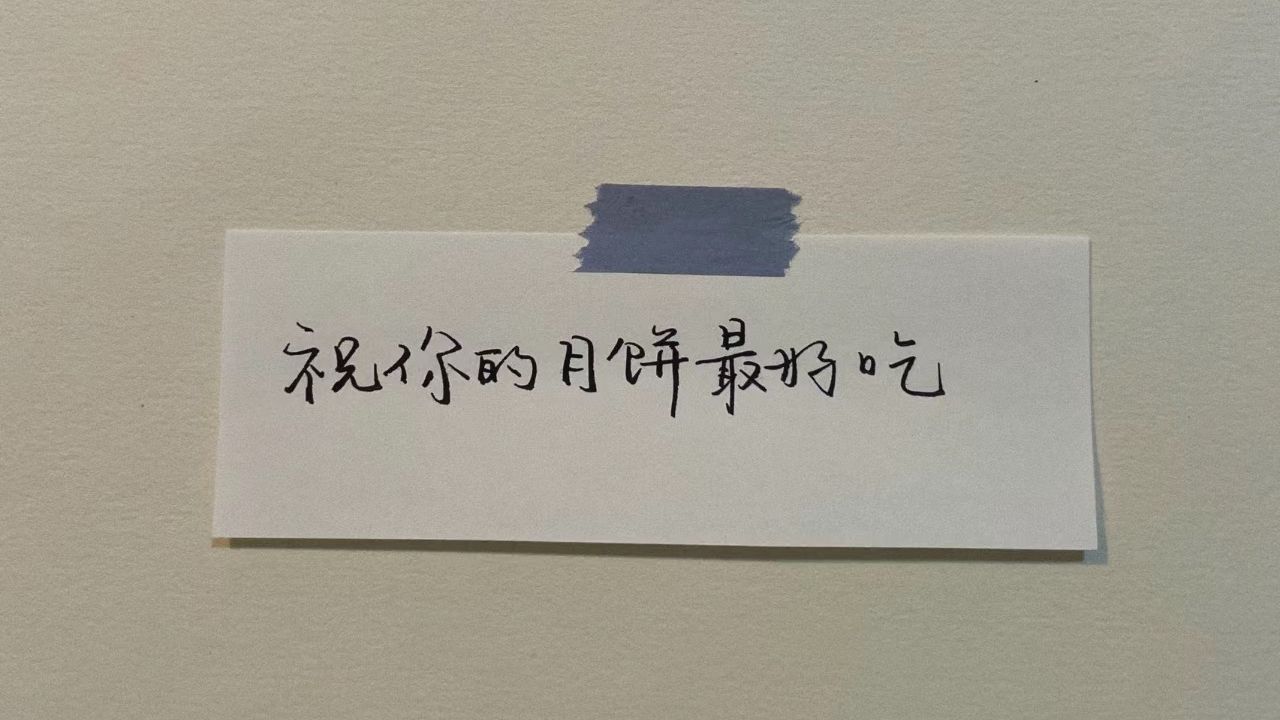 祝你的月饼最好吃